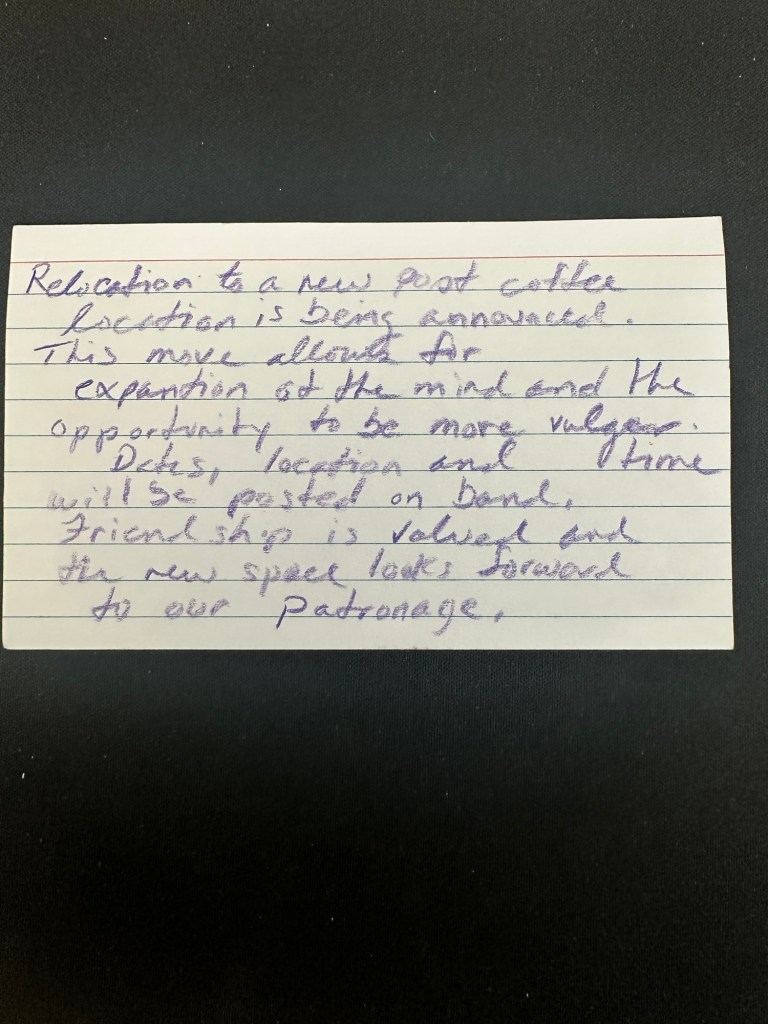 Relocation to a new post coffee
location is being announced.
This move allows for
expantion of the mind and the
opportunity to be more vulger.
Dates, location and time
will be posted on band.
Friendship is valued and
the new space looks forward
to our patronage.